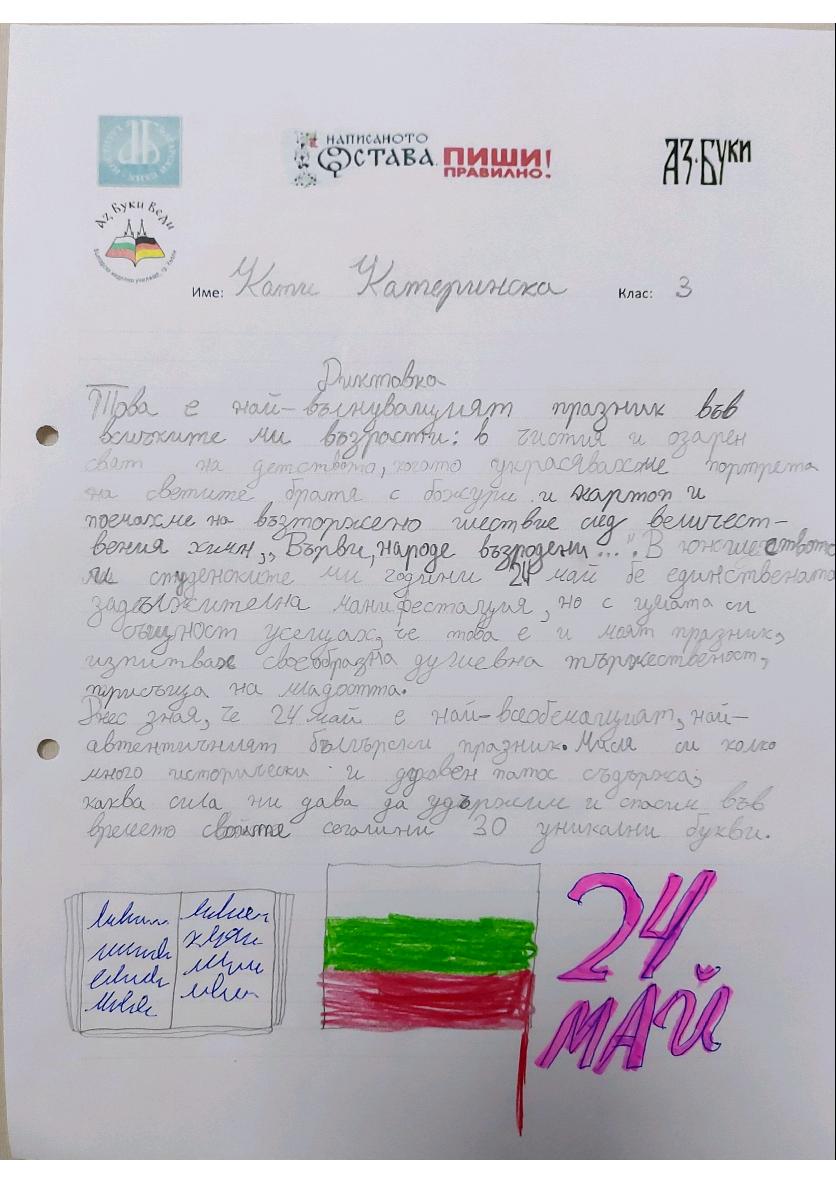 НАПИСАНОТО
ОСТАВА. ПИШИ!
ПРАВИЛНО!
АЗ·БУКИ
Аз Буки Веди
Име: Кати Катеринска Клас: 3
Диктовка
Това е най-вълнуващият празник във
всичките ми възрасти: в чистия и озарен
свят на детството, когато украсявахме портрета
на светите братя с божури и картоп и
поемахме на възторжено шествие след величест-
вения химн „Върви, народе възродени...". В юношеството
и студенските ми години 24 май бе единствената
задължителна манифестация, но с цялата си
същност усещах, че това е и моят празник,
изпитвах своеобразна душевна тържественост,
присъща на младостта.
Днес зная, че 24 май е най-всеобемащият, най-
автентичният български празник. Мисля си колко
много исторически и духовен патос съдържа,
каква сила ни дава да удържим и спасим във
времето своите сегашни 30 уникални букви.
24
МАЙ